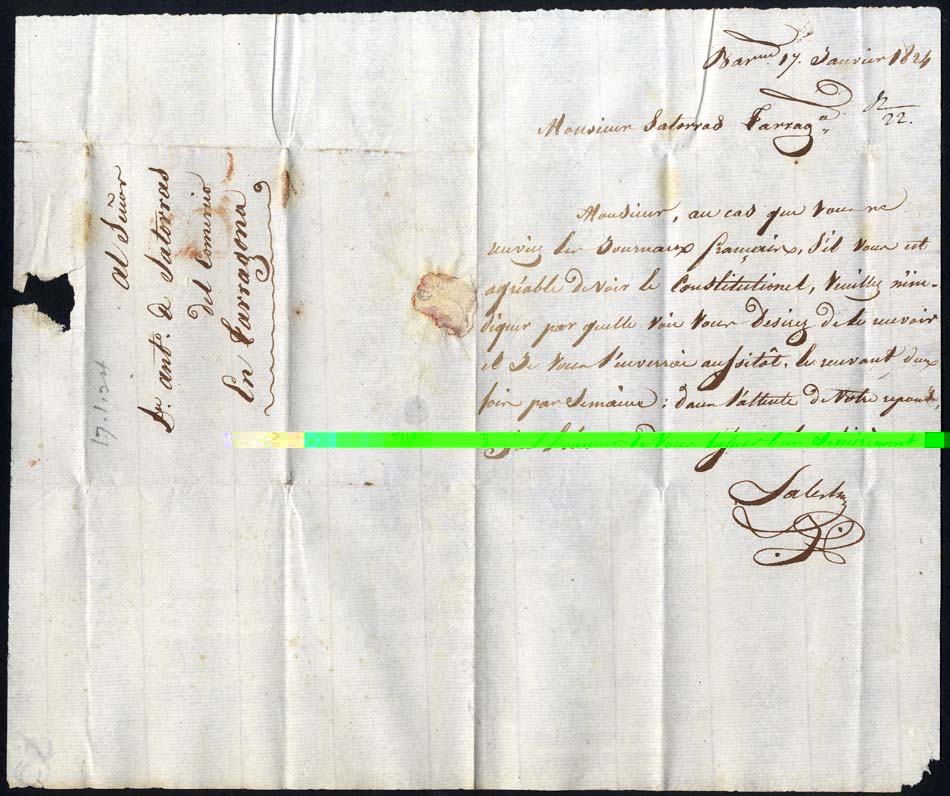 Barna 17. Janvier 1824
Monsieur Satorras Tarraga
R/22.
Monsieur, au cas que vous ne
reuviez les Journaux français, s'il vous est
agréable de voir le Constitutionel, veuillez m'in-
diquer par quelle voie vous desirez de le recevoir
et Je vous l'enverrai aussitôt, le recevant deux
fois par Semaine; dans l'attente de Votre reponse,
J'ai l'honneur de vous
Al Señor
Dn. Anto. de Satorras
del Comercio
En Tarragona
17.1.24